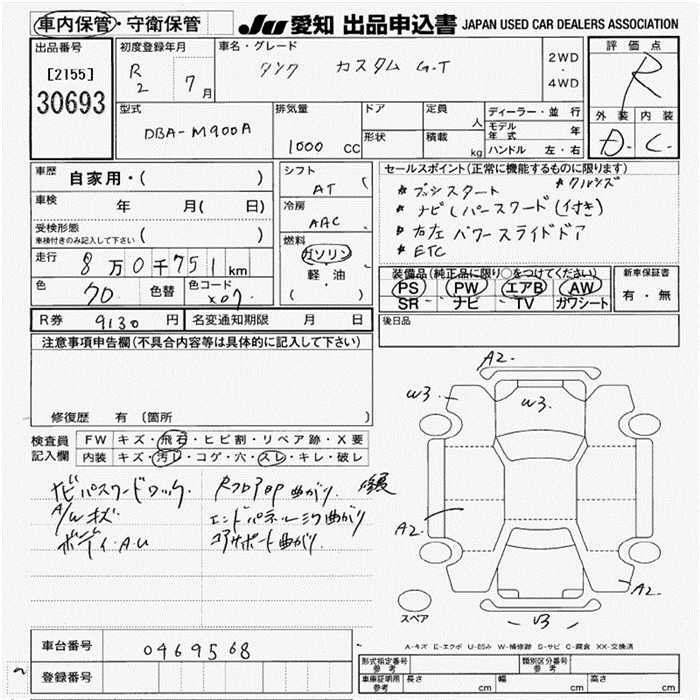 車内保管・守衛保管 JU 愛知 出品申込書 JAPAN USED CAR DEALERS ASSOCIATION
出品番号
[2155]
30693
初度登録年月
R2 7月
車名・グレード
タンク カスタム G-T
2WD
・
4WD
評価点
R
外装 内装
D. C.
型式
DBA-M900A
排気量
1000 CC
ドア
形状
定員 人
積載 kg
ディーラー・並行
モデル年式 年
ハンドル 左・右
車歴 自家用・( )
車検 年 月( 日)
受検形態
車検付きのみ記入して下さい ( )
走行 8万0千751km
色 70 色替 色コード X07
シフト
AT (
冷房
AAC
燃料
ガソリン
軽・油
( )
セールスポイント(正常に機能するものに限ります)
* プッシスタート * クルンズ
* ナビ(パースワード(付き)
* 右左 パワースライドドア
* ETC
装備品(純正品に限り○をつけてください)
PS PW エアB AW
SR ナビ TV カワシート
新車保証書
有・無
R券 9130 円 名変通知期限 月 日
後日品
注意事項申告欄(不具合内容等は具体的に記入して下さい)
修復歴 有 (箇所 )
検査員記入欄
FW キズ・飛石・ヒビ割・リペア跡・X要
内装 キズ・汚レ・コゲ・穴・スレ・キレ・破レ
ナビパスワードロック.
A/Wキズ
ボディ・A.U
Rフロアロア曲がり.
エンドパネル 曲がり
コアサポート曲がり
A2.
W3
W3.
A2.
A2.
U3
スペア
A-キズ E-エクボ U-凹み W-補修跡 S-サビ C-腐食 XX-交換済
車台番号 0469568
登録番号
形式指定番号 参考
類別区分番号 参考
車庫証明用 参考 長さ cm 幅 cm 高さ cm